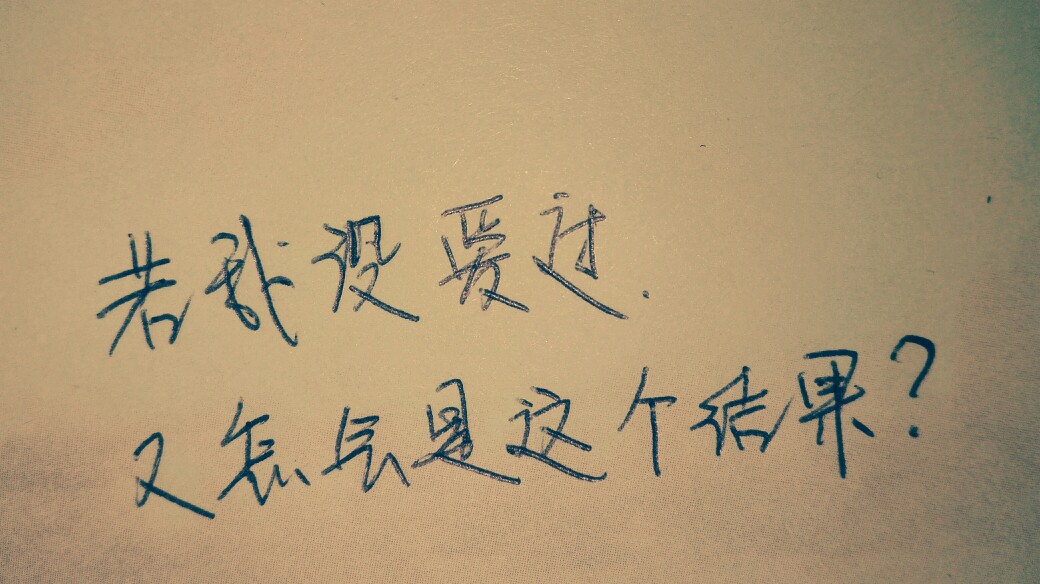 若我没爱过.
又怎么是这个结果?